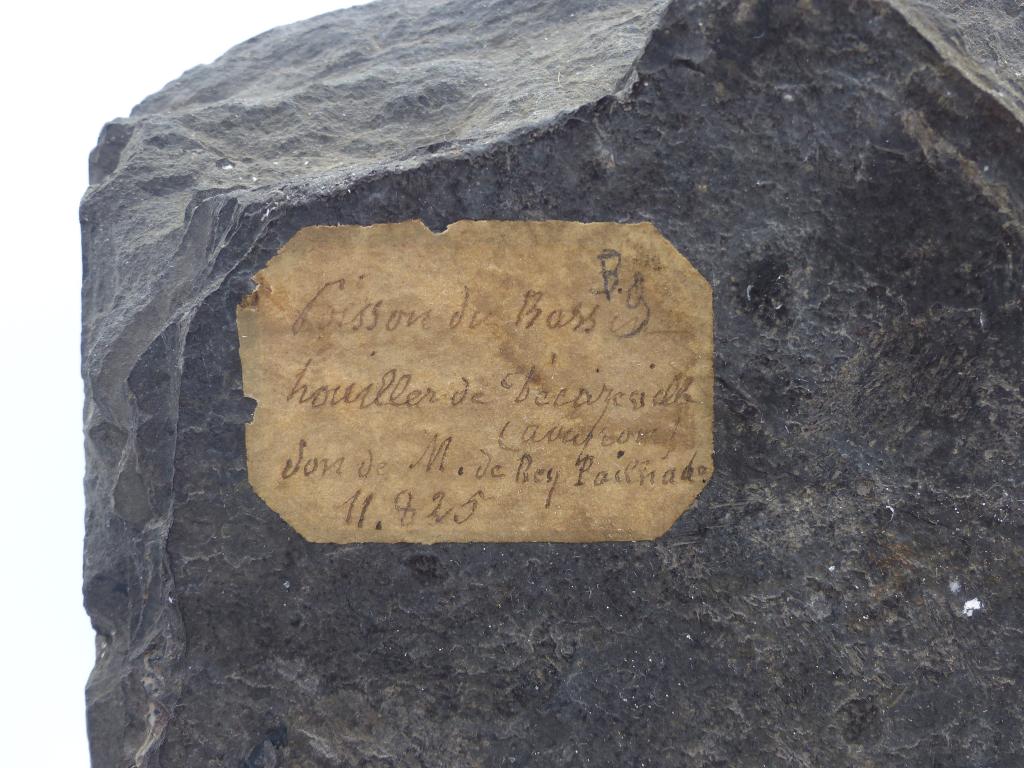 P.9
Poisson du Bass
houiller de Décazeville
(aveyron)
Don de M. de Rey Pailhade
11.825